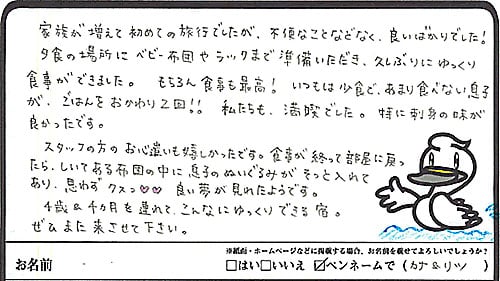 家族が増えて初めての旅行でしたが、不便なことなどなく、良いばかりでした!
夕食の場所にベビー布団やラックまで準備いただき、久しぶりにゆっくり
食事ができました。 もちろん食事も最高! いつもは少食で、あまり食べない息子
が、ごはんをおかわり2回!! 私たちも、満喫でした。特に刺身の味が
良かったです。
スタッフの方のお心遣いも嬉しかったです。食事が終って部屋に戻っ
たら、しいてある布団の中に息子のぬいぐるみがそっと入れて
あり、思わずクスっ♡♡ 良い夢が見れたようです。
4歳&4カ月を連れて、こんなにゆっくりできる宿。
ぜひまた来させて下さい。
※紙面・ホームページなどに掲載する場合、お名前を載せてよろしいでしょうか?
お名前 □はい□いいえ ☑ペンネームで(カナ&リツ )